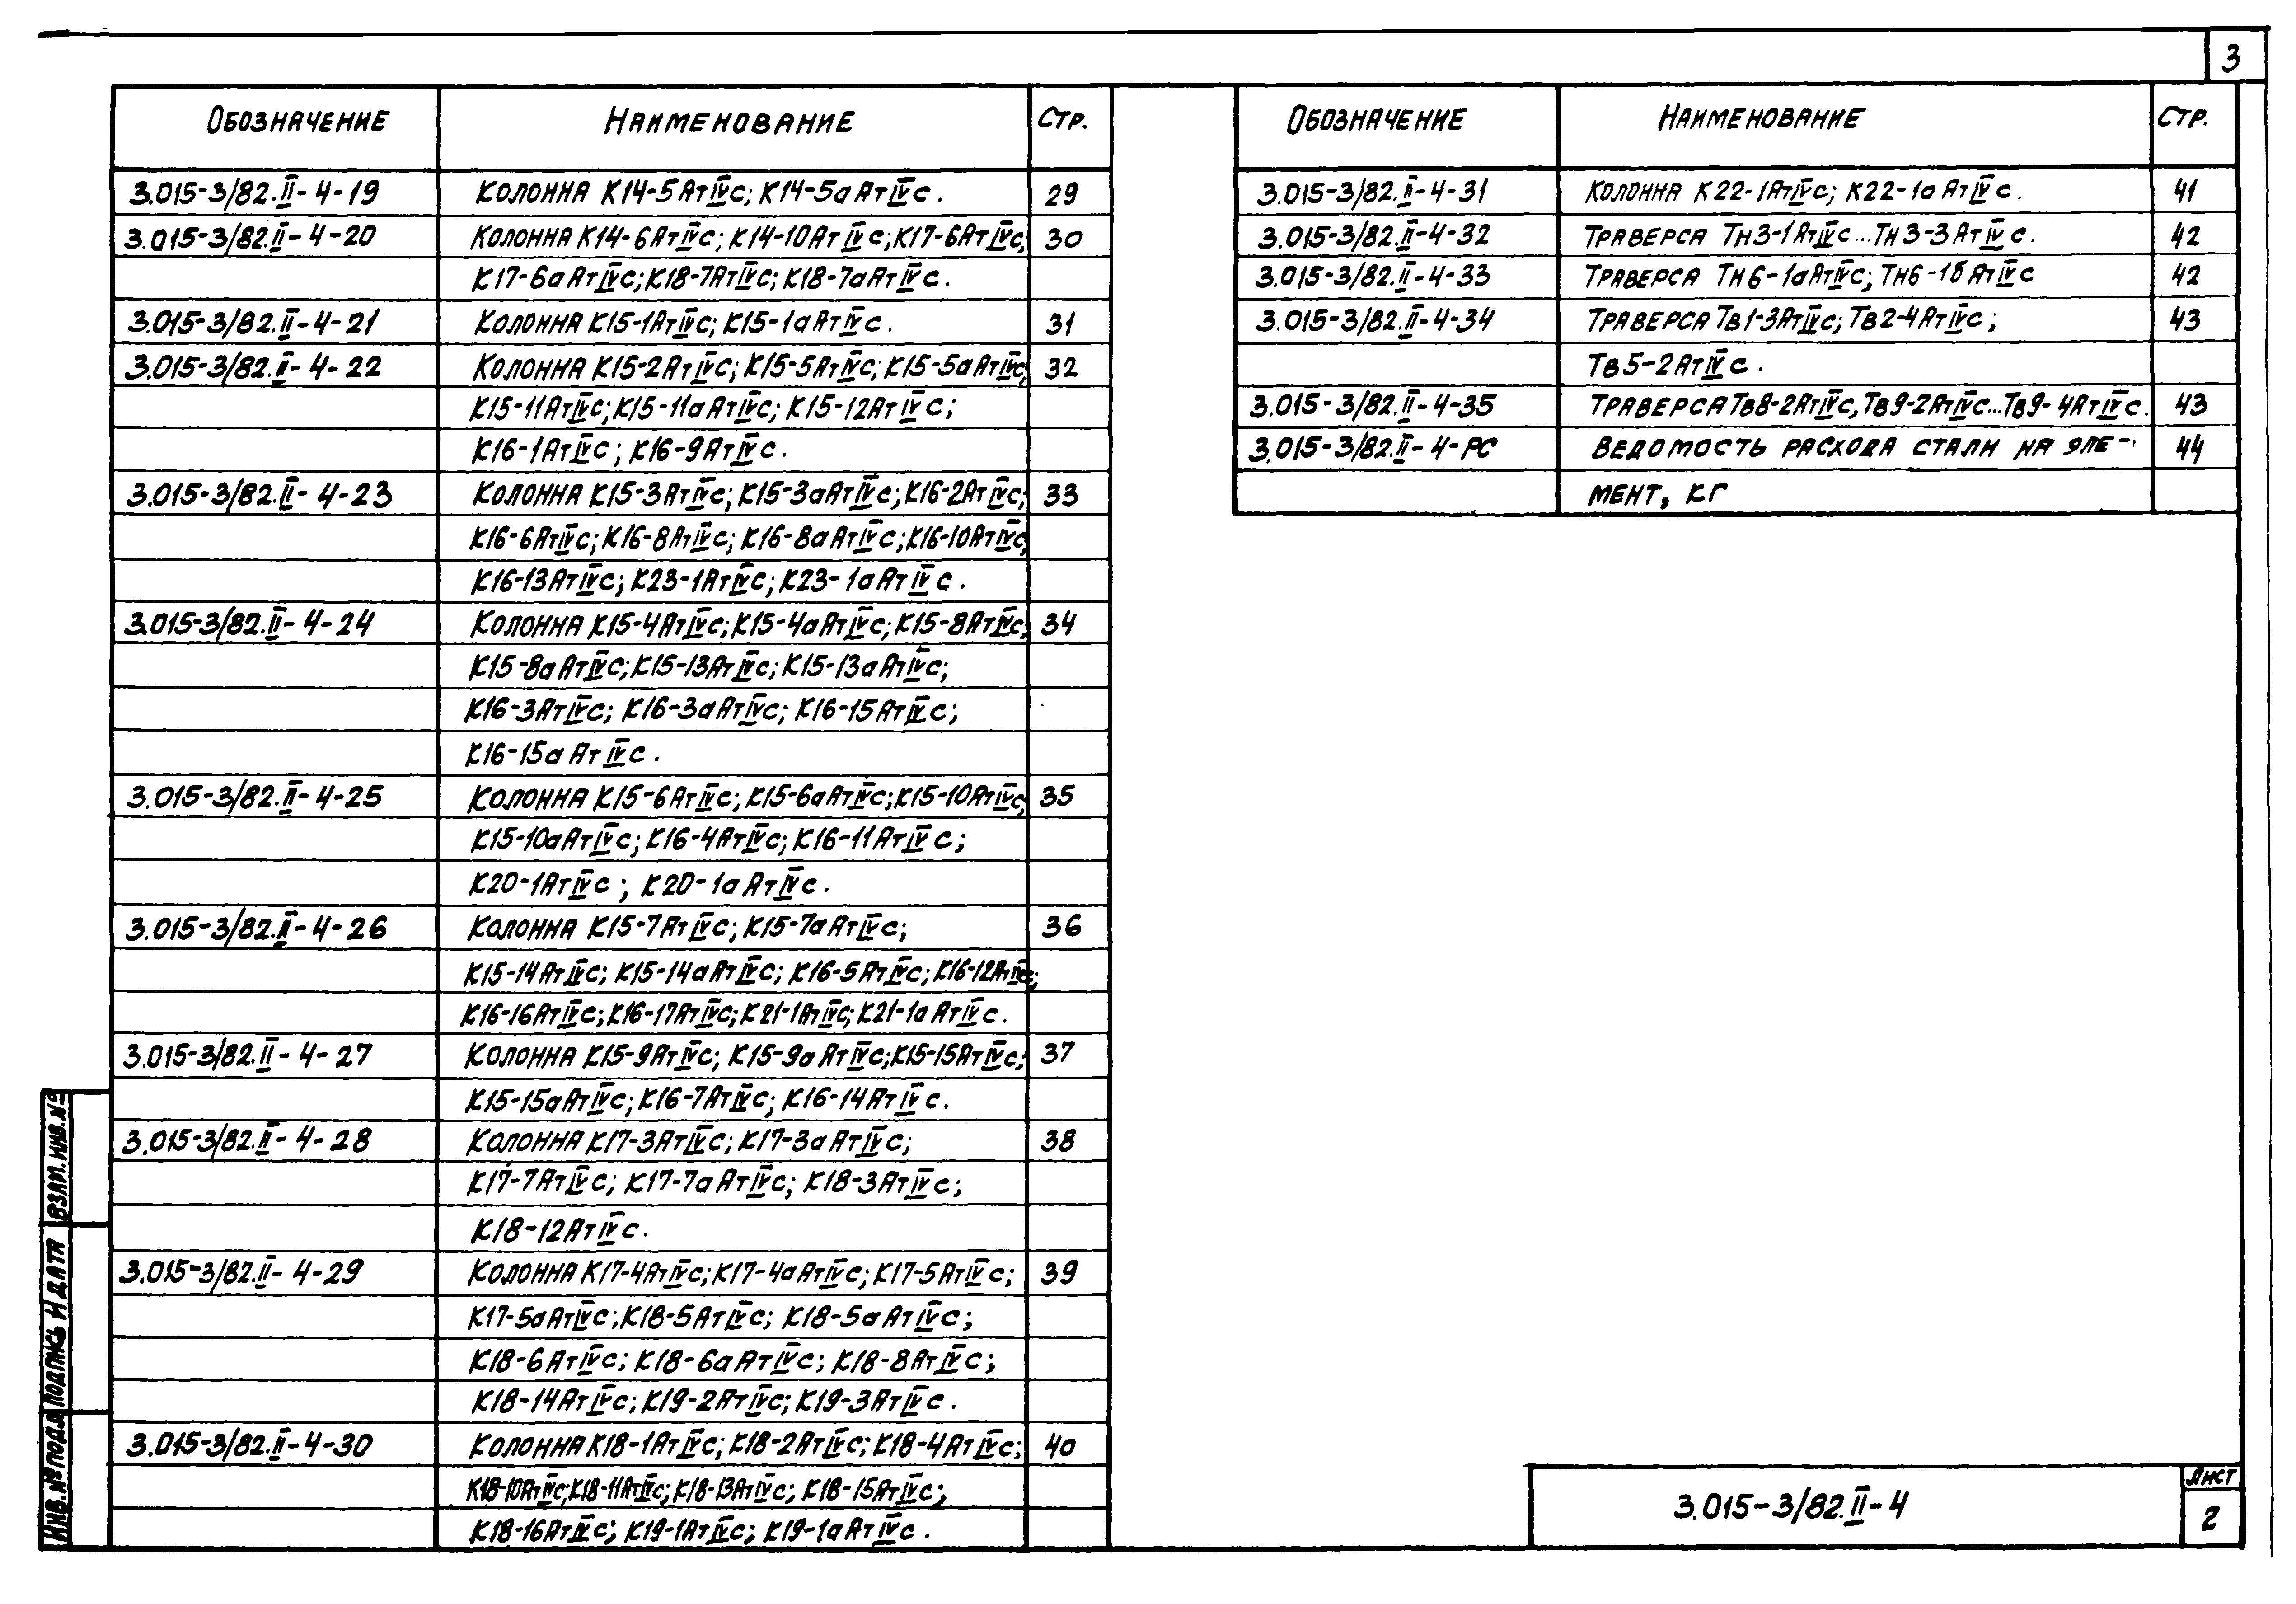 3
Обозначение Наименование Стр.
3.015-3/82.II-4-19 Колонна К14-5АтIVс; К14-5аАтIVс. 29
3.015-3/82.II-4-20 Колонна К14-6АтIVс; К14-10АтIVс; К17-6АтIVс; 30
К17-6аАтIVс; К18-7АтIVс; К18-7аАтIVс.
3.015-3/82.II-4-21 Колонна К15-1АтIVс; К15-1аАтIVс. 31
3.015-3/82.II-4-22 Колонна К15-2АтIVс; К15-5АтIVс; К15-5аАтIVс; 32
К15-11АтIVс; К15-11аАтIVс; К15-12АтIVс;
К16-1АтIVс; К16-9АтIVс.
3.015-3/82.II-4-23 Колонна К15-3АтIVс; К15-3аАтIVс; К16-2АтIVс; 33
К16-6АтIVс; К16-8АтIVс; К16-8аАтIVс; К16-10АтIVс;
К16-13АтIVс; К23-1АтIVс; К23-1аАтIVс.
3.015-3/82.II-4-24 Колонна К15-4АтIVс; К15-4аАтIVс; К15-8АтIVс; 34
К15-8аАтIVс; К15-13АтIVс; К15-13аАтIVс;
К16-3АтIVс; К16-3аАтIVс; К16-15АтIVс;
К16-15аАтIVс.
3.015-3/82.II-4-25 Колонна К15-6АтIVс; К15-6аАтIVс; К15-10АтIVс; 35
К15-10аАтIVс; К16-4АтIVс; К16-11АтIVс;
К20-1АтIVс; К20-1аАтIVс.
3.015-3/82.II-4-26 Колонна К15-7АтIVс; К15-7аАтIVс; 36
К15-14АтIVс; К15-14аАтIVс; К16-5АтIVс; К16-12АтIVс;
К16-16АтIVс; К16-17АтIVс; К21-1АтIVс; К21-1аАтIVс.
3.015-3/82.II-4-27 Колонна К15-9АтIVс; К15-9аАтIVс; К15-15АтIVс; 37
К15-15аАтIVс; К16-7АтIVс; К16-14АтIVс.
3.015-3/82.II-4-28 Колонна К17-3АтIVс; К17-3аАтIVс; 38
К17-7АтIVс; К17-7аАтIVс; К18-3АтIVс;
К18-12АтIVс.
3.015-3/82.II-4-29 Колонна К17-4АтIVс; К17-4аАтIVс; К17-5АтIVс; 39
К17-5аАтIVс; К18-5АтIVс; К18-5аАтIVс;
К18-6АтIVс; К18-6аАтIVс; К18-8АтIVс;
К18-14АтIVс; К19-2АтIVс; К19-3АтIVс.
3.015-3/82.II-4-30 Колонна К18-1АтIVс; К18-2АтIVс; К18-4АтIVс; 40
К18-10АтIVс; К18-11АтIVс; К18-13АтIVс; К18-15АтIVс;
К18-16АтIVс; К19-1АтIVс; К19-1аАтIVс.
Обозначение Наименование Стр.
3.015-3/82.II-4-31 Колонна К22-1АтIVс; К22-1аАтIVс. 41
3.015-3/82.II-4-32 Траверса Тн3-1АтIVс...Тн3-3АтIVс. 42
3.015-3/82.II-4-33 Траверса Тн6-1аАтIVс; Тн6-1бАтIVс 42
3.015-3/82.II-4-34 Траверса Тв1-3АтIVс; Тв2-4АтIVс; 43
Тв5-2АтIVс.
3.015-3/82.II-4-35 Траверса Тв8-2АтIVс, Тв9-2АтIVс...Тв9-4АтIVс. 43
3.015-3/82.II-4-РС Ведомость расхода стали на эле- 44
мент, кг
Взам. инв. №
Подпись и дата
Инв. № подл.
3.015-3/82.II-4
Лист
2